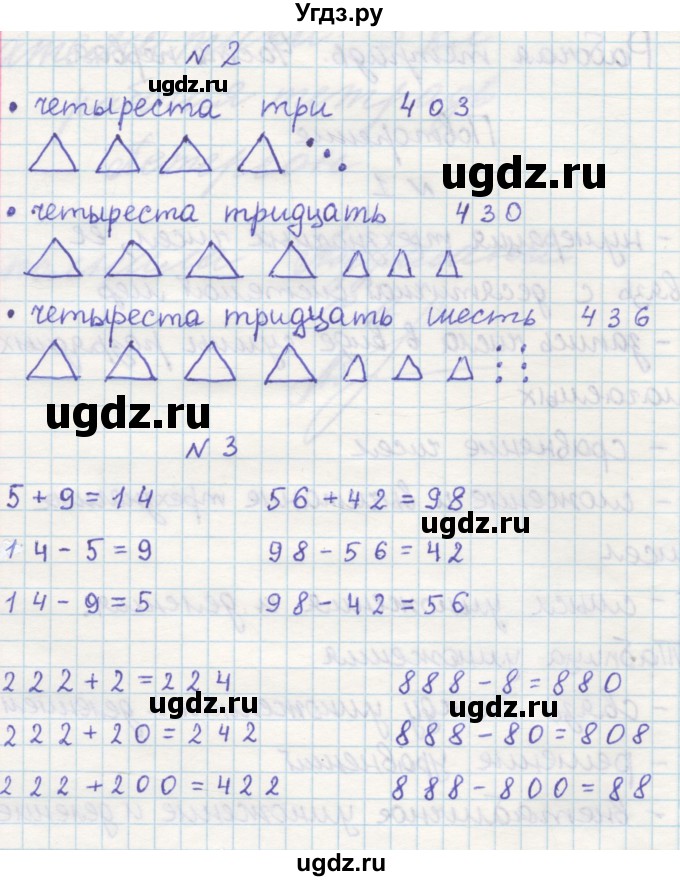 Угдз.ру
N 2
ugdz.ru
• четыреста три 403
ugdz.ru
• четыреста тридцать 430
• четыреста тридцать шесть 436
ugdz.ru
N 3
5 + 9 = 14 56 + 42 = 98
ugdz.ru
14 - 5 = 9 98 - 56 = 42
14 - 9 = 5 98 - 42 = 56
222 + 2 = 224 888 - 8 = 880
ugdz.ru ugdz.ru
222 + 20 = 242 888 - 80 = 808
222 + 200 = 422 888 - 800 = 88
ugdz.ru